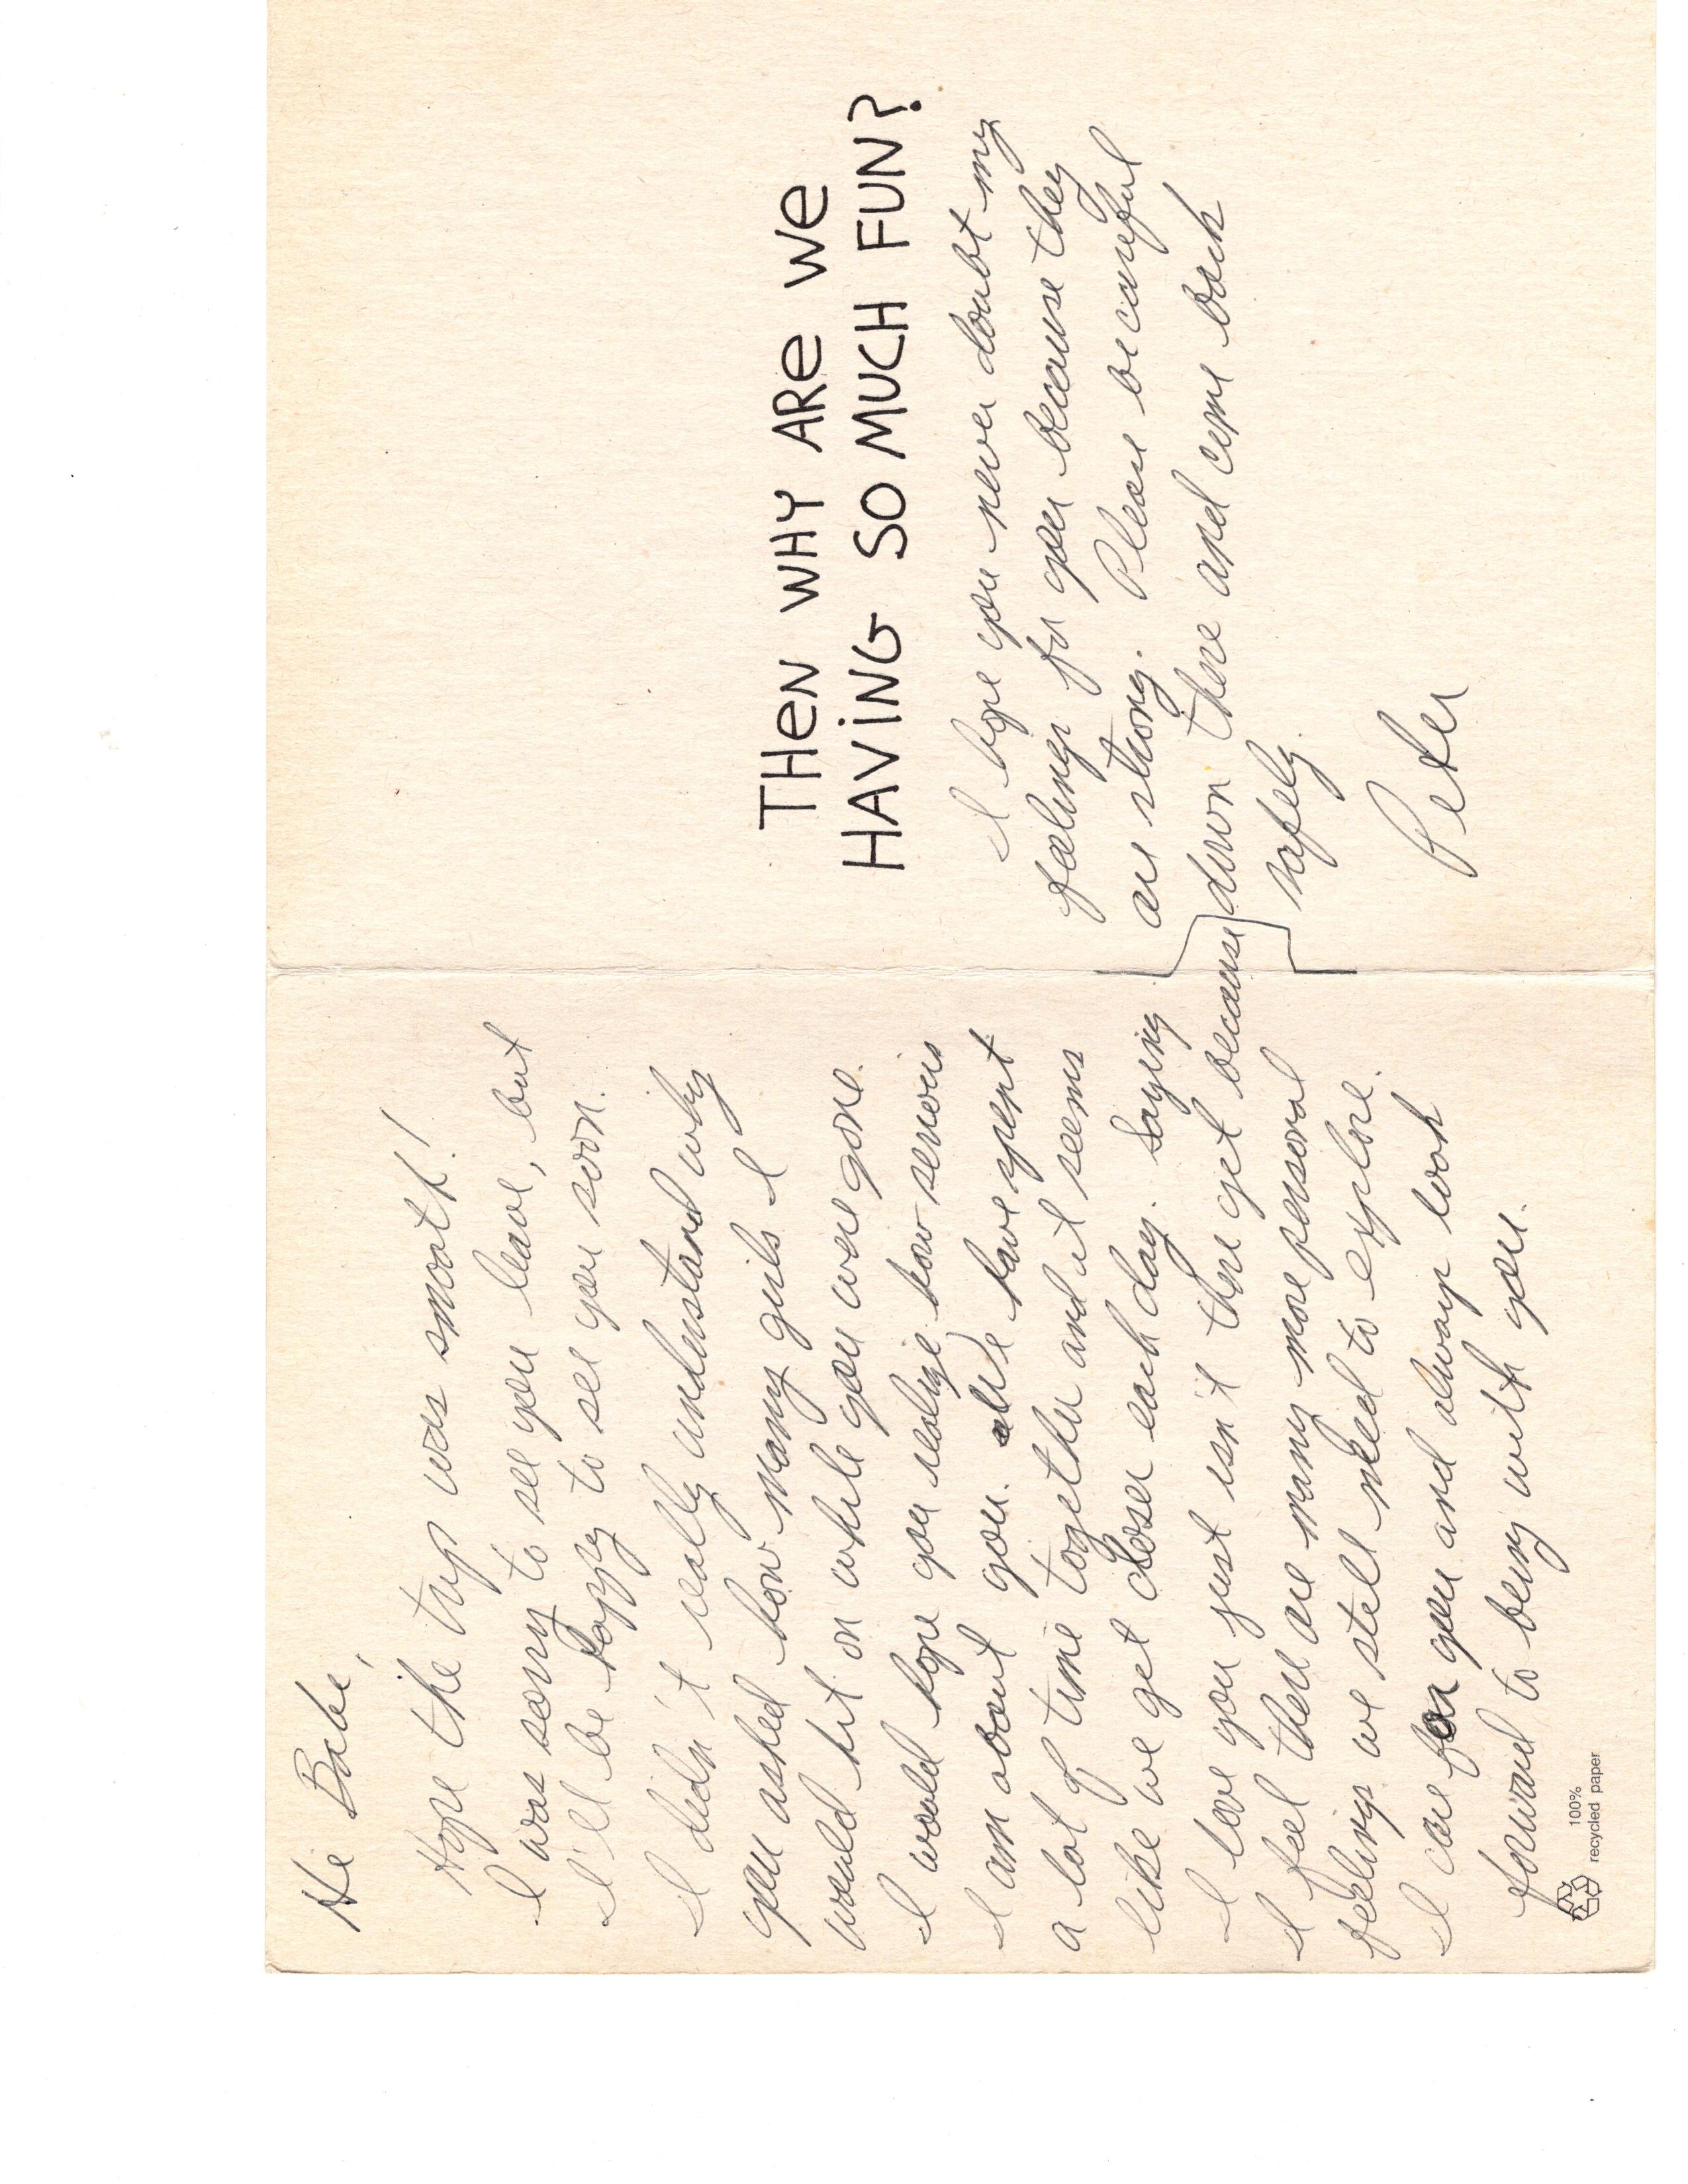 Hi Babe,
Hope the trip was smooth!
I was sorry to see you leave, but
I'll be happy to see you soon.
I didn't really understand why
you asked how many girls I
would hit on while you were gone.
I would hope you realize how serious
I am about you. We have spent
a lot of time together and it seems
like we get closer each day. Saying
I love you just isn't there yet because
I feel there are many more personal
feelings we still need to explore.
I care for you and always look
forward to being with you.
100%
recycled paper
THEN WHY ARE WE
HAVING SO MUCH FUN?
I hope you never doubt my
feelings for you because they
are strong. Please be careful
down there and come back
safely.
Peter